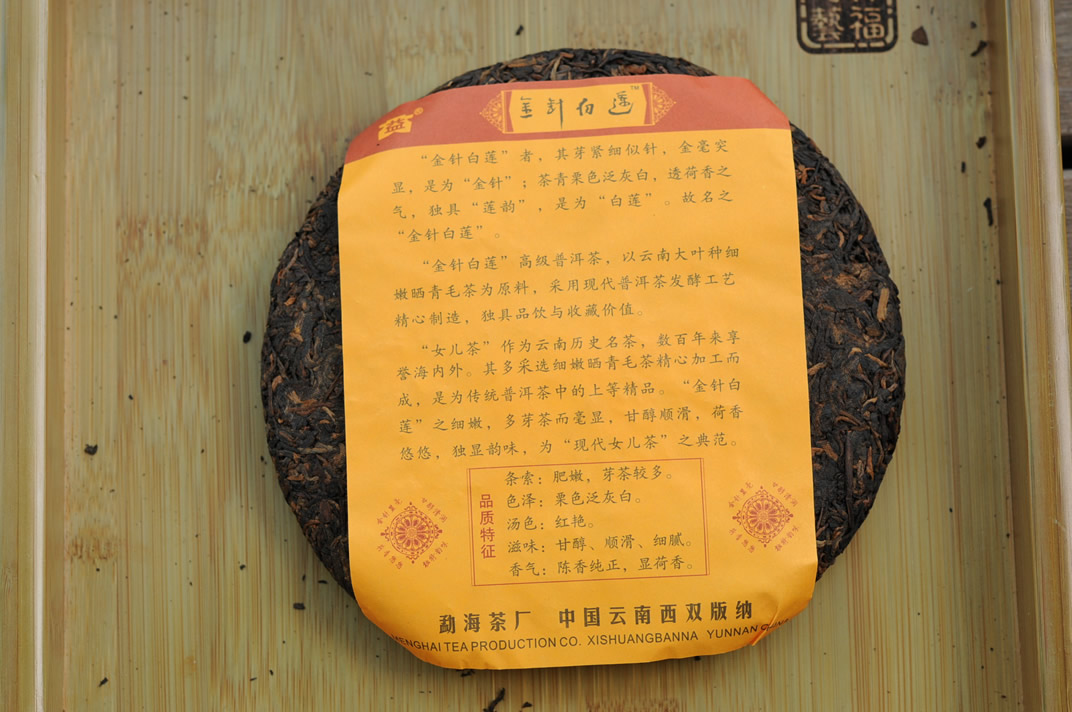 藝 福
益
金针白莲™
“金针白莲”者，其芽紧细似针，金毫突
显，是为“金针”；茶青栗色泛灰白，透荷香之
气，独具“莲韵”，是为“白莲”。故名之
“金针白莲”。
“金针白莲”高级普洱茶，以云南大叶种细
嫩晒青毛茶为原料，采用现代普洱茶发酵工艺
精心制造，独具品饮与收藏价值。
“女儿茶”作为云南历史名茶，数百年来享
誉海内外。其多采选细嫩晒青毛茶精心加工而
成，是为传统普洱茶中的上等精品。“金针白
莲”之细嫩，多芽茶而毫显，甘醇顺滑，荷香
悠悠，独显韵味，为“现代女儿茶”之典范。
品质特征
条索：肥嫩，芽茶较多。
色泽：栗色泛灰白。
汤色：红艳。
滋味：甘醇、顺滑、细腻。
香气：陈香纯正，显荷香。
勐海茶厂 中国云南西双版纳
MENGHAI TEA PRODUCTION CO. XISHUANGBANNA YUNNAN CHINA